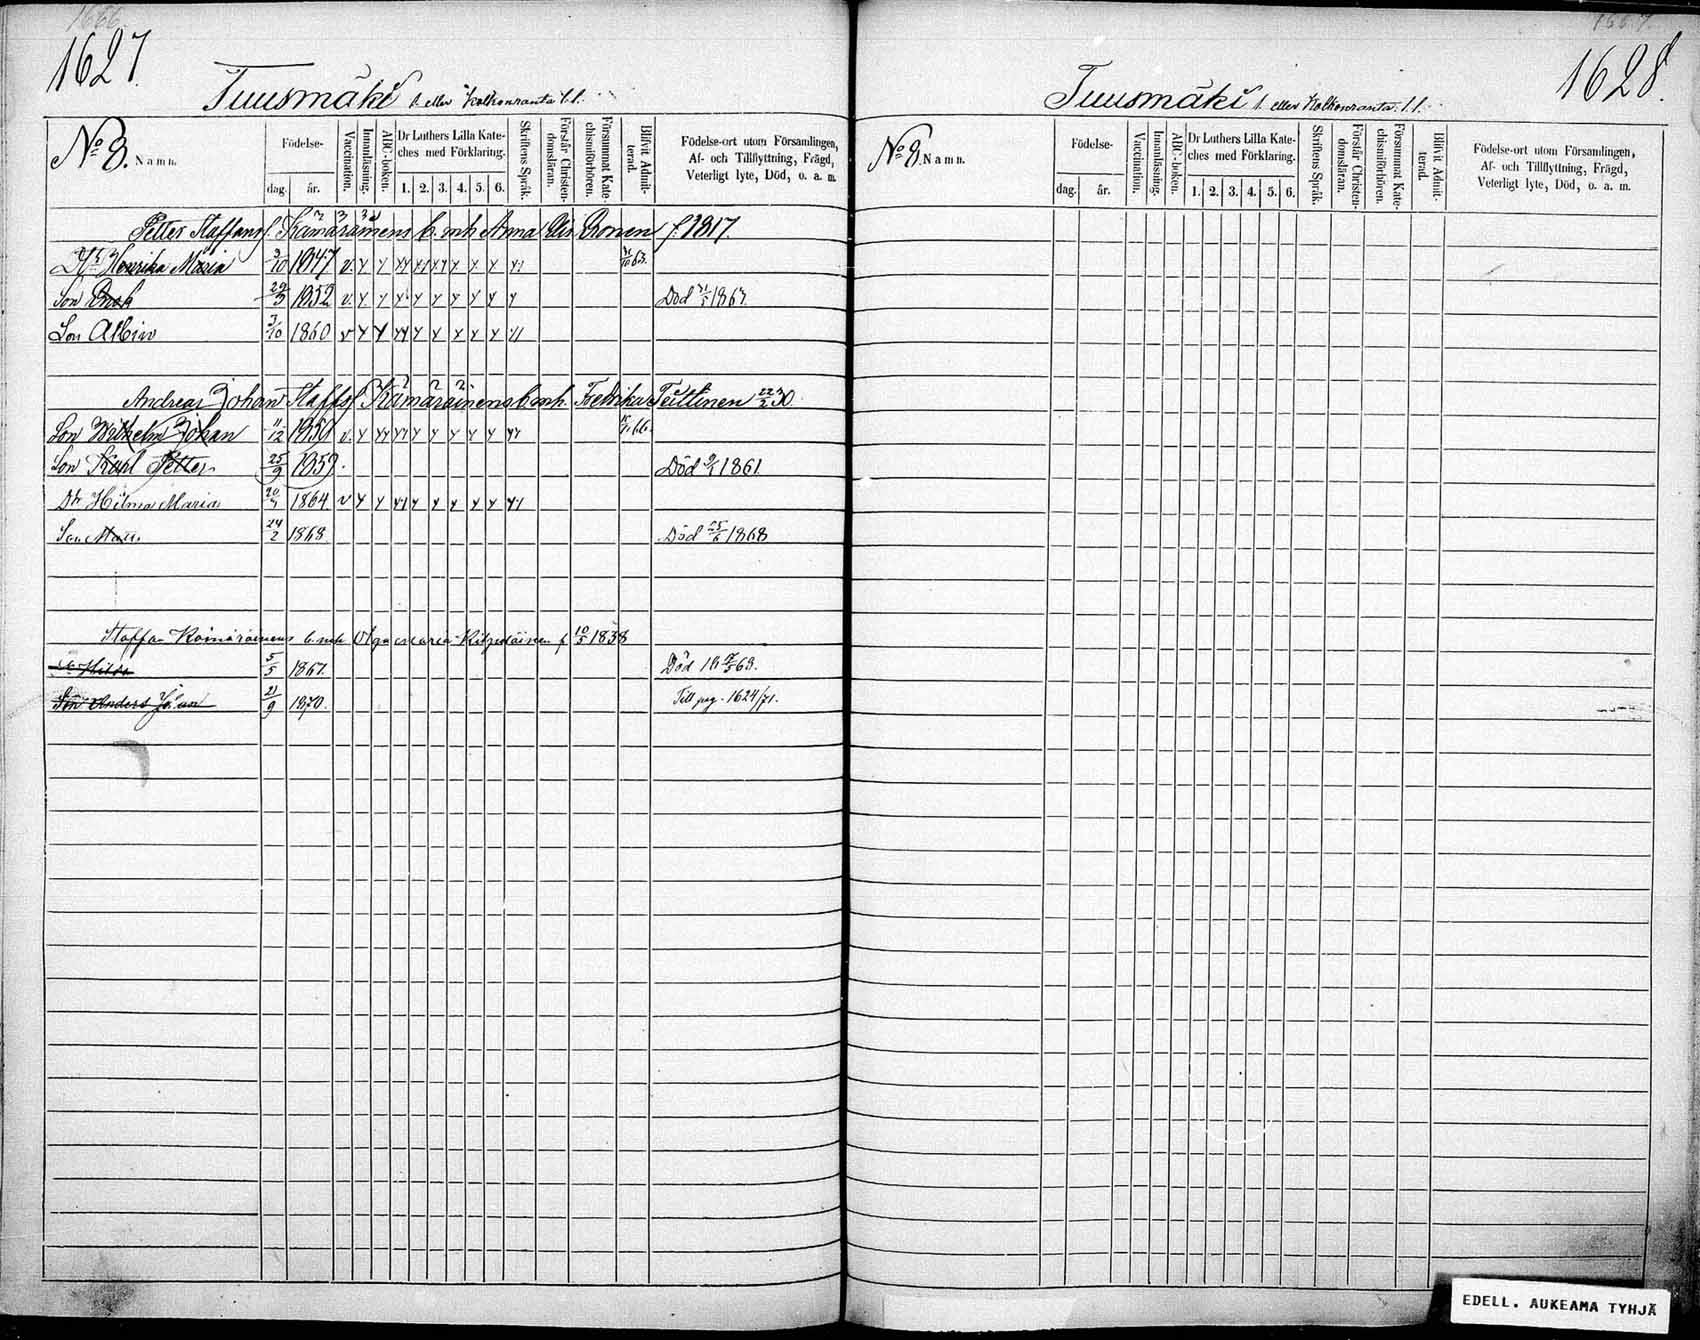 1666
1627.
Tuusmäki l. eller Kolkonranta l.l.
No 8. Namn.
Födelse-
dag. år.
Vaccination.
Innanläsning.
ABC-boken.
Dr Luthers Lilla Kate-
ches med Förklaring.
1. 2. 3. 4. 5. 6.
Skriftens Språk.
Förstår Christen-
domsläran.
Försummat Kate-
chismiförhören.
Blifvit Admit-
terad.
Födelse-ort utom Församlingen,
Af- och Tillflyttning, Frägd,
Veterligt lyte, Död, o. a. m.
Petter Staffans s. Kämäräinens b. mh Anna f. 1817.
Dr Henrika Maria 3/10 1847 v.
Son Enok 1852 v. Död 1867.
Son Albin 3/10 1860 v
Andreas Johan Staffs s Kämäräinens b. mh. Fredrika Teittinen 22/2 30.
Son Wilhelm Johan 11/12 1850 v. 66.
Son Karl Petter 25/9 1859. Död 9/1 1861.
Dr Hilma Maria 1864 v
Son 24/2 1868 Död 25/6 1868
Staffan Kämäräinens b. mh Olga Maria f 10/5 1838
Hilda 5/5 1867. Död 69.
Son Anders Johan 21/9 1870. Till pag. 1624/71.
1667.
1628.
Tuusmäki l. eller Kolkonranta l.l.
No 8. Namn.
Födelse-
dag. år.
Vaccination.
Innanläsning.
ABC-boken.
Dr Luthers Lilla Kate-
ches med Förklaring.
1. 2. 3. 4. 5. 6.
Skriftens Språk.
Förstår Christen-
domsläran.
Försummat Kate-
chismiförhören.
Blifvit Admit-
terad.
Födelse-ort utom Församlingen,
Af- och Tillflyttning, Frägd,
Veterligt lyte, Död, o. a. m.
EDELL. AUKEAMA TYHJÄ